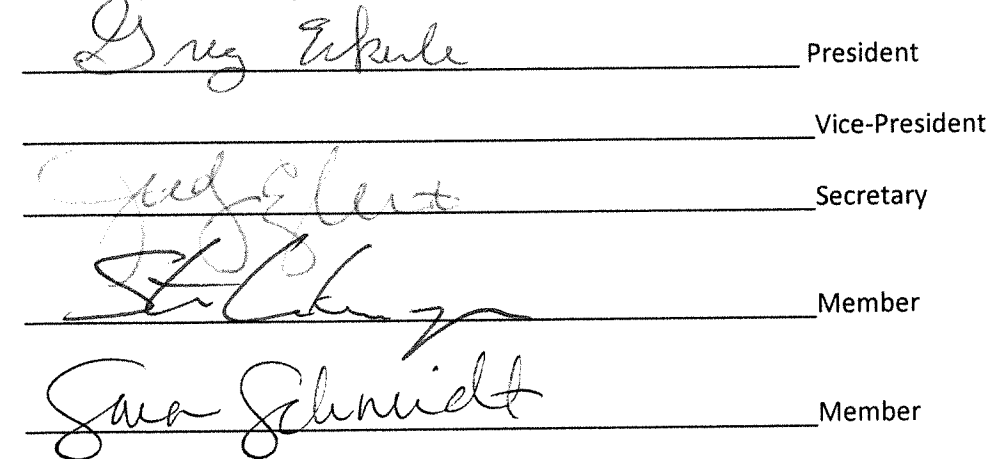 Greg Eckerle President
Vice-President
Judy Eckert Secretary
Member
Sara Schmidt Member